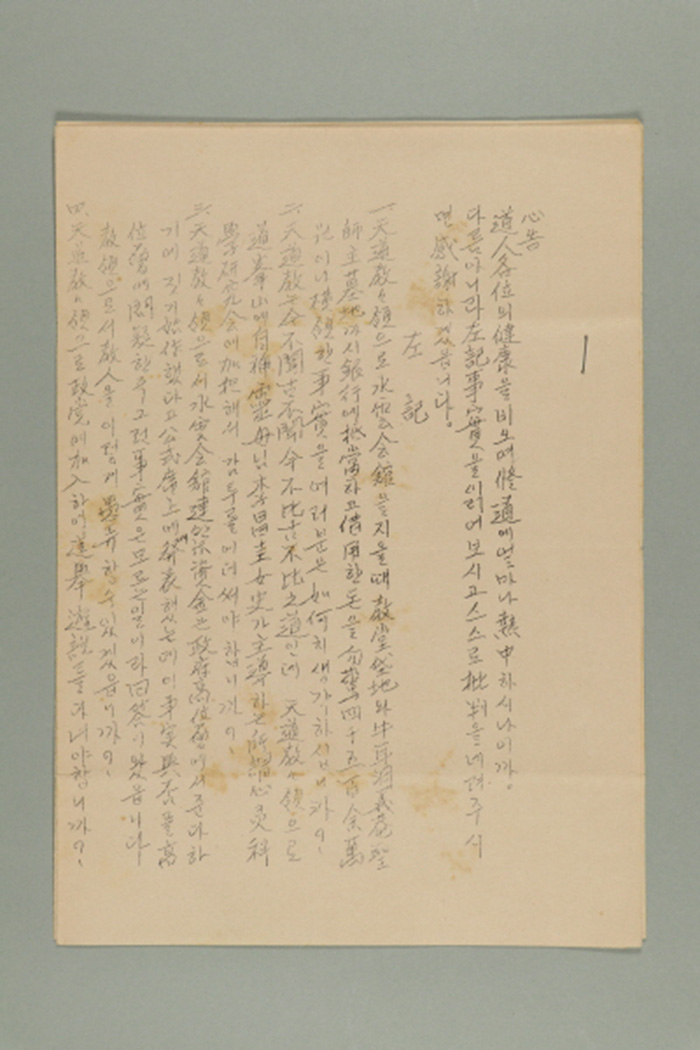 心告
道人各位의 健康을 비오며 修道에 얼마나 熱中하시나이까.
다름아니라 左記事實을 읽어보시고 스스로 批判을 내려주시
면 感謝하겠읍니다.
左 記
一. 天道教教領으로 水雲会館을 지을때 教堂垈地와 牛耳洞義菴聖
師主墓地까지 銀行에 抵當하고 借用한 돈을 四千五百余萬
원이나 橫領한 事實을 여러분은 如何히 생각하십니까?
二. 天道教는 今不聞古不聞 今不比古不比之道인데 天道教教領으로
道峯山에 自稱 靈母님 李昌圭女史가 主導하는 所謂 心灵科
學硏究会에 加担해서 감투를 에 더 써야 합니까?
三. 天道教教領으로서 水雲会館建築資金은 政府高位層에서 준다하
기에 짓기 始作했다고 公式席上에서 發表했는데 이 事実與否를 高
位層에 問疑한 즉 그런 事實은 모르는 일이라 回答이 왔읍니다
教領으로서 教人을 이렇게 愚弄할 수 있겠읍니까?
四. 天道教教領으로 政党에 加入하여 選擧 遊說를 다녀야 합니까?